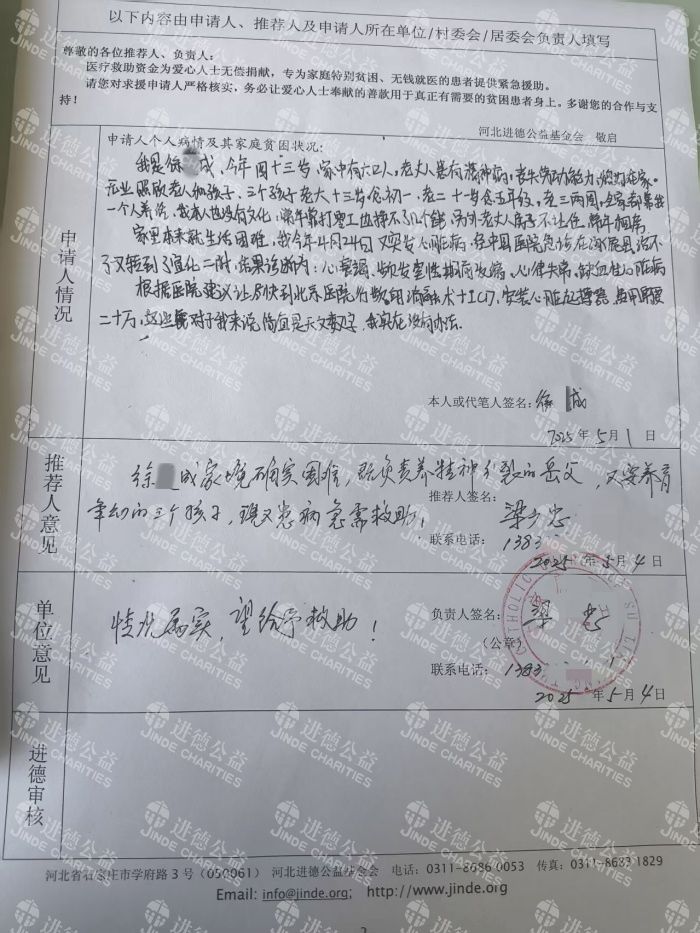 以下内容由申请人、推荐人及申请人所在单位/村委会/居委会负责人填写
尊敬的各位推荐人、负责人:
医疗救助资金为爱心人士无偿捐献,专为家庭特别贫困、无钱就医的患者提供紧急援助。
请您对求援申请人严格核实,务必让爱心人士奉献的善款用于真正有需要的贫困患者身上。多谢您的合作与支
持!
河北进德公益基金会 敬启
申请人情况
申请人个人病情及其家庭贫困状况:
我是徐 成,今年四十三岁,家中有六口人,老丈人患有精神病,丧失劳动能力,
照顾老人和孩子、三个孩子老大十三岁念初一,老二十一岁念五年级,老三两周,全家都靠我
一个人养活,我本人也没有文化,常年靠打零工也挣不了几个钱,另外老丈人房子不让住,常年租房,
家里本来就生活困难,我今年4月24日又突发心脏病,经中医院急诊在涿鹿县治不
了又转到了宣化二附,结果诊断为:心室调、频发室性期前收缩、心律失常、缺血性心脏病
根据医院建议让尽快到北京医院行射频消融术+ICD,安装心脏起搏器,费用需要
二十万,这些对于我来说简直是天文数字,我实在没有办法。
本人或代笔人签名:徐 成
2025 年 5 月 1 日
推荐人意见
徐 成家境确实困难,既负责养精神分裂的岳父,又要养育
年幼的三个孩子,现又患病急需救助!
推荐人签名:
梁 忠
联系电话: 1383
2025 年 5 月 4 日
单位意见
情况属实,望给予救助!
负责人签名: 梁 忠
(公章)
CATHOLIC
联系电话: 1383
2025 年 5 月 4 日
进德审核
河北省石家庄市学府路3号(050061) 河北进德公益基金会 电话:0311-8686 0053 传真:0311-8683 1829
Email: info@jinde.org; http://www.jinde.org
进德公益
JINDE CHARITIES